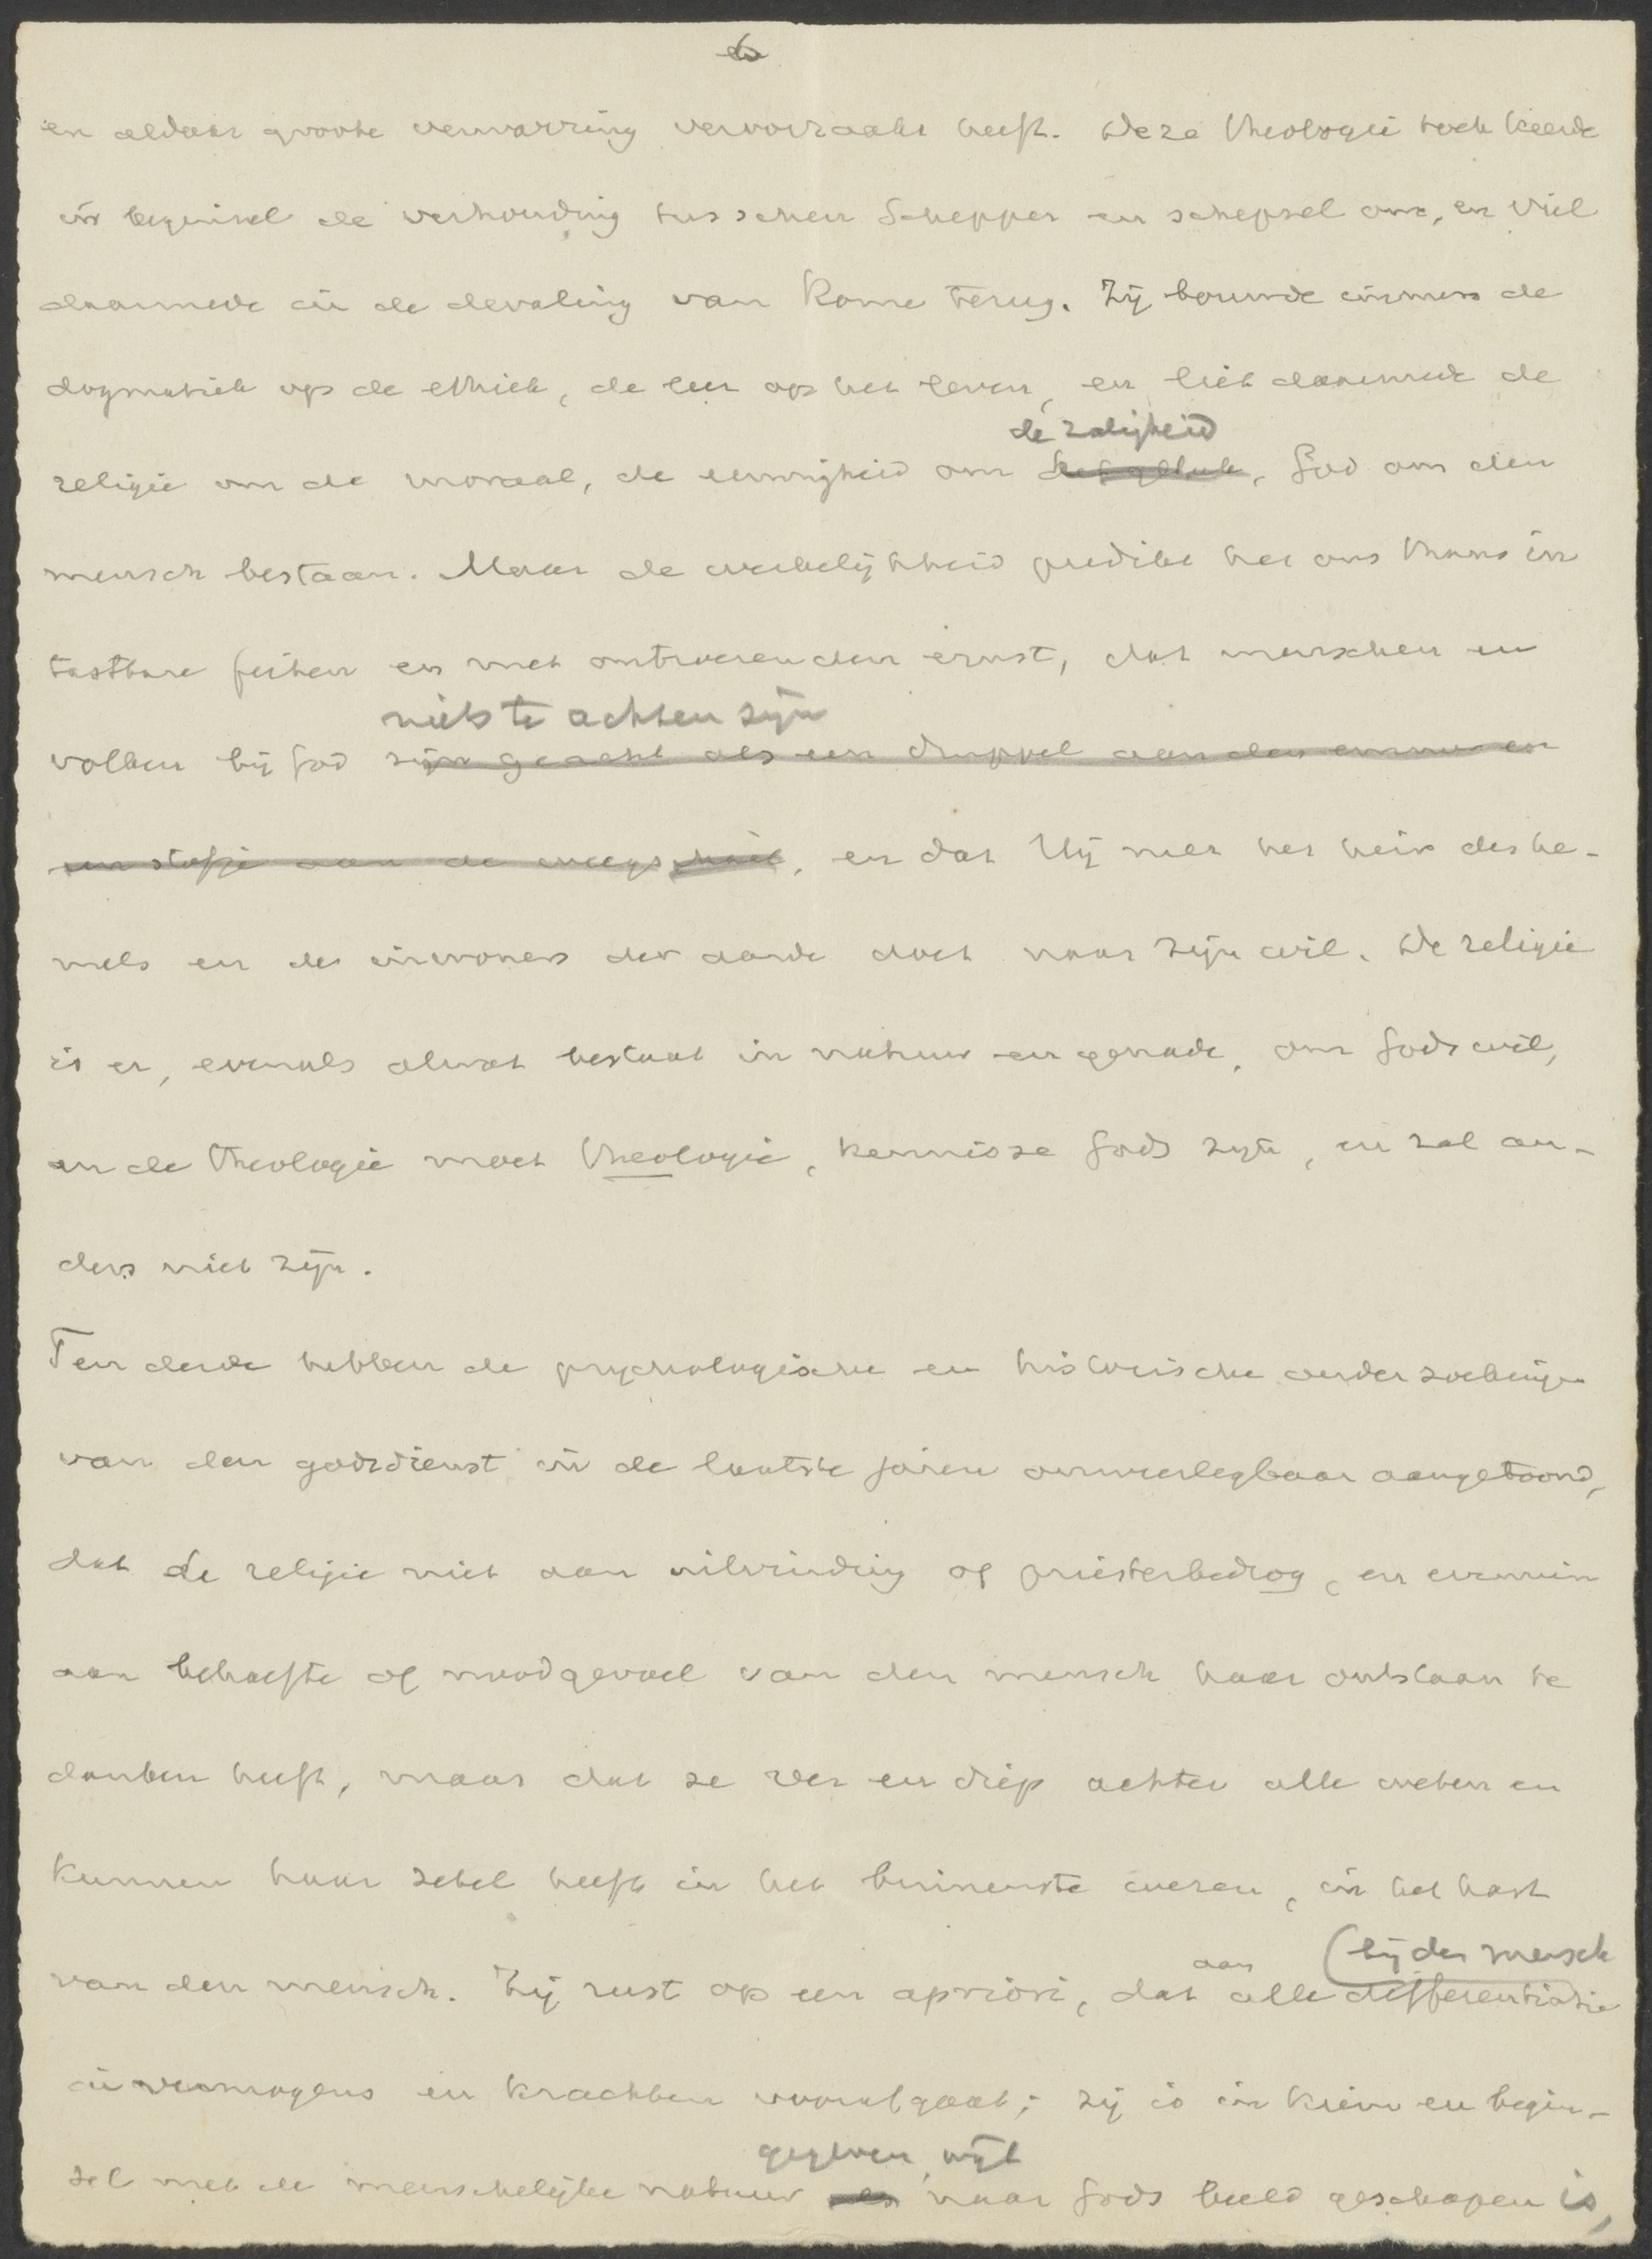 6
en aldaar groote verwarring veroorzaakt heeft. Deze theologie toch keerde
in beginsel de verhouding tusschen Schepper en schepsel om, en viel
daarmede in de dwaling van Rome terug. Zij bouwde immers de
dogmatiek op de ethiek, de leer op het leven, en liet daarmede de
de zaligheid
religie om de moraal, de eeuwigheid om het geluk, God om den
mensch bestaan. Maar de werkelijkheid predikt het ons thans in
tastbare feiten en met ontroerenden ernst, dat menschen en
niets te achten zijn
volken bij God zijn geacht als een druppel aan den emmer en
een stofje aan de weegschaal, en dat Hij met het heir des he-
mels en de inwoners der aarde doet naar zijn wil. De religie
is er, evenals alwat bestaat in natuur en genade, om Gods wil,
en de theologie moet theologie, kennisse Gods zijn, en zal an-
ders niet zijn.
Ten derde hebben de psychologische en historische onderzoekingen
van den godsdienst in de laatste jaren onweerlegbaar aangetoond,
dat de religie niet aan uitvinding of priesterbedrog, en evenmin
aan behoefte of noodgevoel van den mensch haar ontstaan te
danken heeft, maar dat ze ver en diep achter alle weten en
kunnen haar zetel heeft in het binnenste wezen, in het hart
aan (bij den mensch
van den mensch. Zij rust op een apriori, dat alle differentiatie
in vermogens en krachten voorafgaat; zij is in kiem en begin-
gegeven, wijl
sel met de menschelijke natuur naar Gods beeld geschapen is,